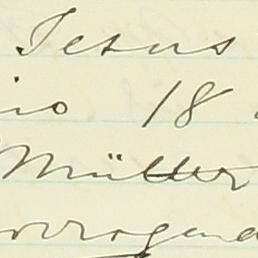 Jesus
io 18
Müller